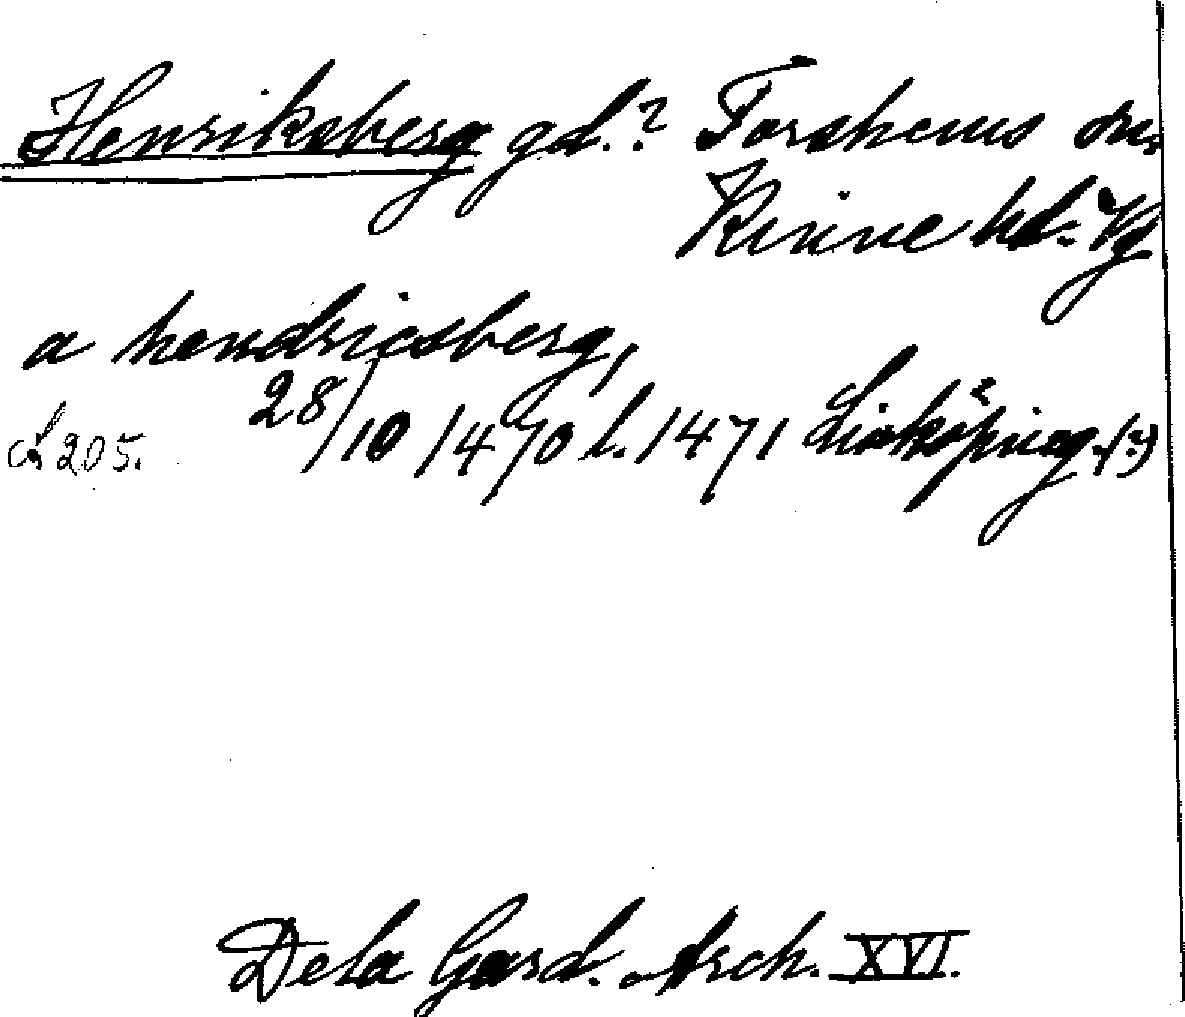 Henriksberg gd.? Forshems sn.
Kinne hd. Vg
a hendricsberg,
28/10 1470 l. 1471 Linköping.(?)
S. 205.
De la Gard. Arch. XVI.